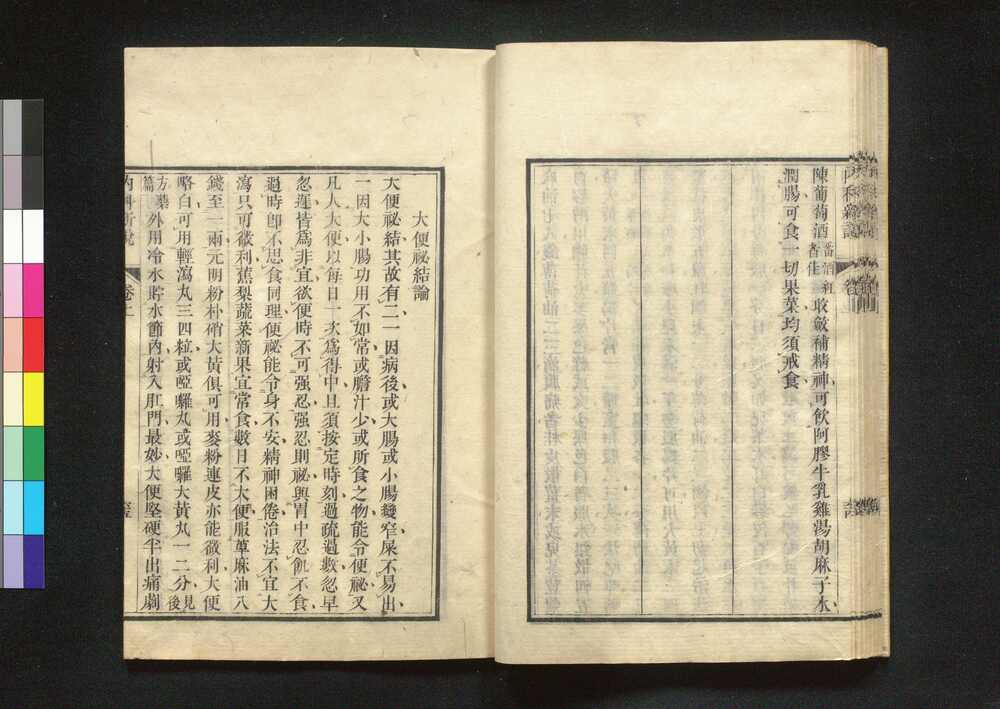 陳葡萄酒番酒紅者佳收斂補精神可飲阿膠牛乳雞湯胡麻子水
潤腸可食一切果菜均須戒食
大便祕結論
大便祕結其故有二一因病後或大腸或小腸變窄屎不易出
一因大小腸功用不如常或膽汁少或所食之物能令便祕又
凡人大便以每日一次爲得中且須按定時刻過疏過數忽早
忽遲皆爲非宜欲便時不可强忍强忍則祕與胃中忍飢不食
過時卽不思食同理便祕能令身不安精神困倦治法不宜大
瀉只可微利蕉梨蔬菜新果宜常食數日不大便服萆麻油八
錢至一兩元明粉朴硝大黃俱可用麥粉連皮亦能微利大便
略白可用輕瀉丸三四粒或啞囉丸或啞囉大黃丸一二分見後
方藥篇外用冷水貯水節內射入肛門最妙大便堅硬半出痛劇
內科新說
卷上